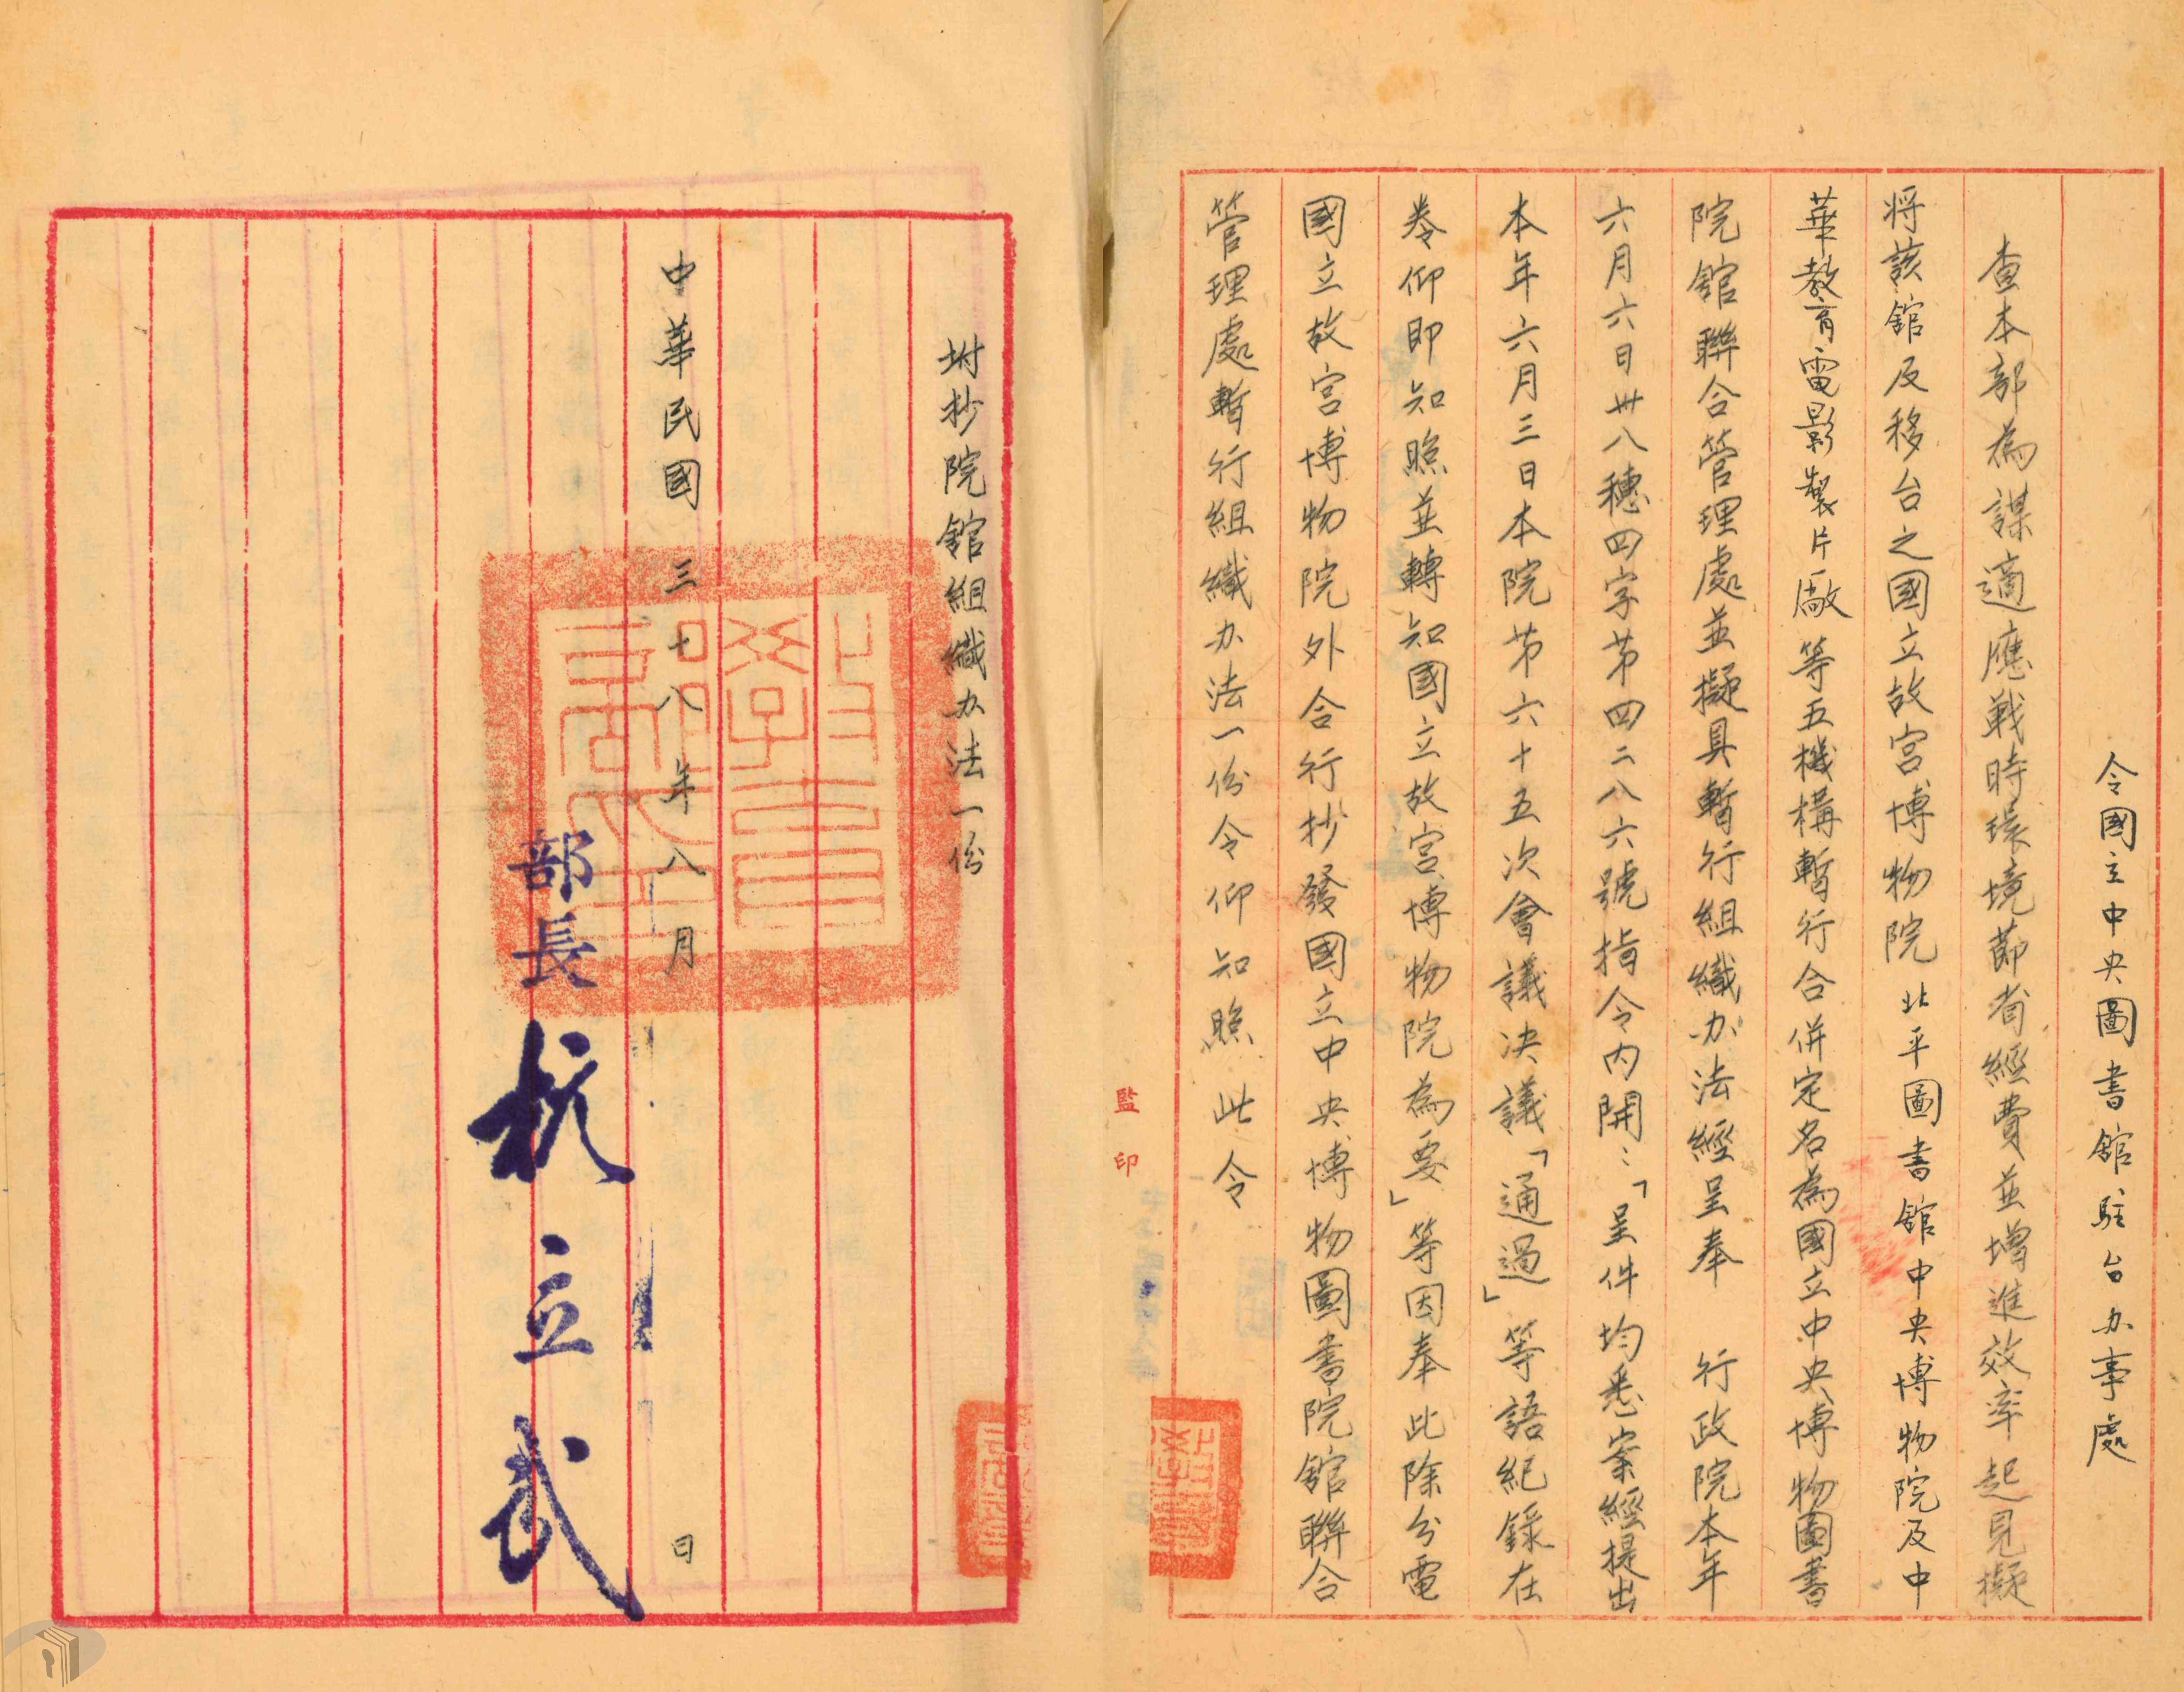 令國立中央圖書館駐台办事處
查本部為謀適應戰時環境節省經費並增進效率起見擬
將該館及移台之國立故宮博物院北平圖書館中央博物院及中
華教育電影製片廠等五機構暫行合併定名為國立中央博物圖書
院館聯合管理處並擬具暫行組織办法經呈奉 行政院本年
六月六日卅八穗四字苐四二八六號指令内開：「呈件均悉案經提出
本年六月三日本院苐六十五次會議决議「通過」等語紀錄在
卷仰即知照並轉知國立故宮博物院為要」等因奉此除分電
國立故宮博物院外合行抄發國立中央博物圖書院館聯合
管理處暫行組織办法一份令仰知照 此令
監印
坿抄院館組織办法一份
中華民國三十八年八月 日
部長 杭立武